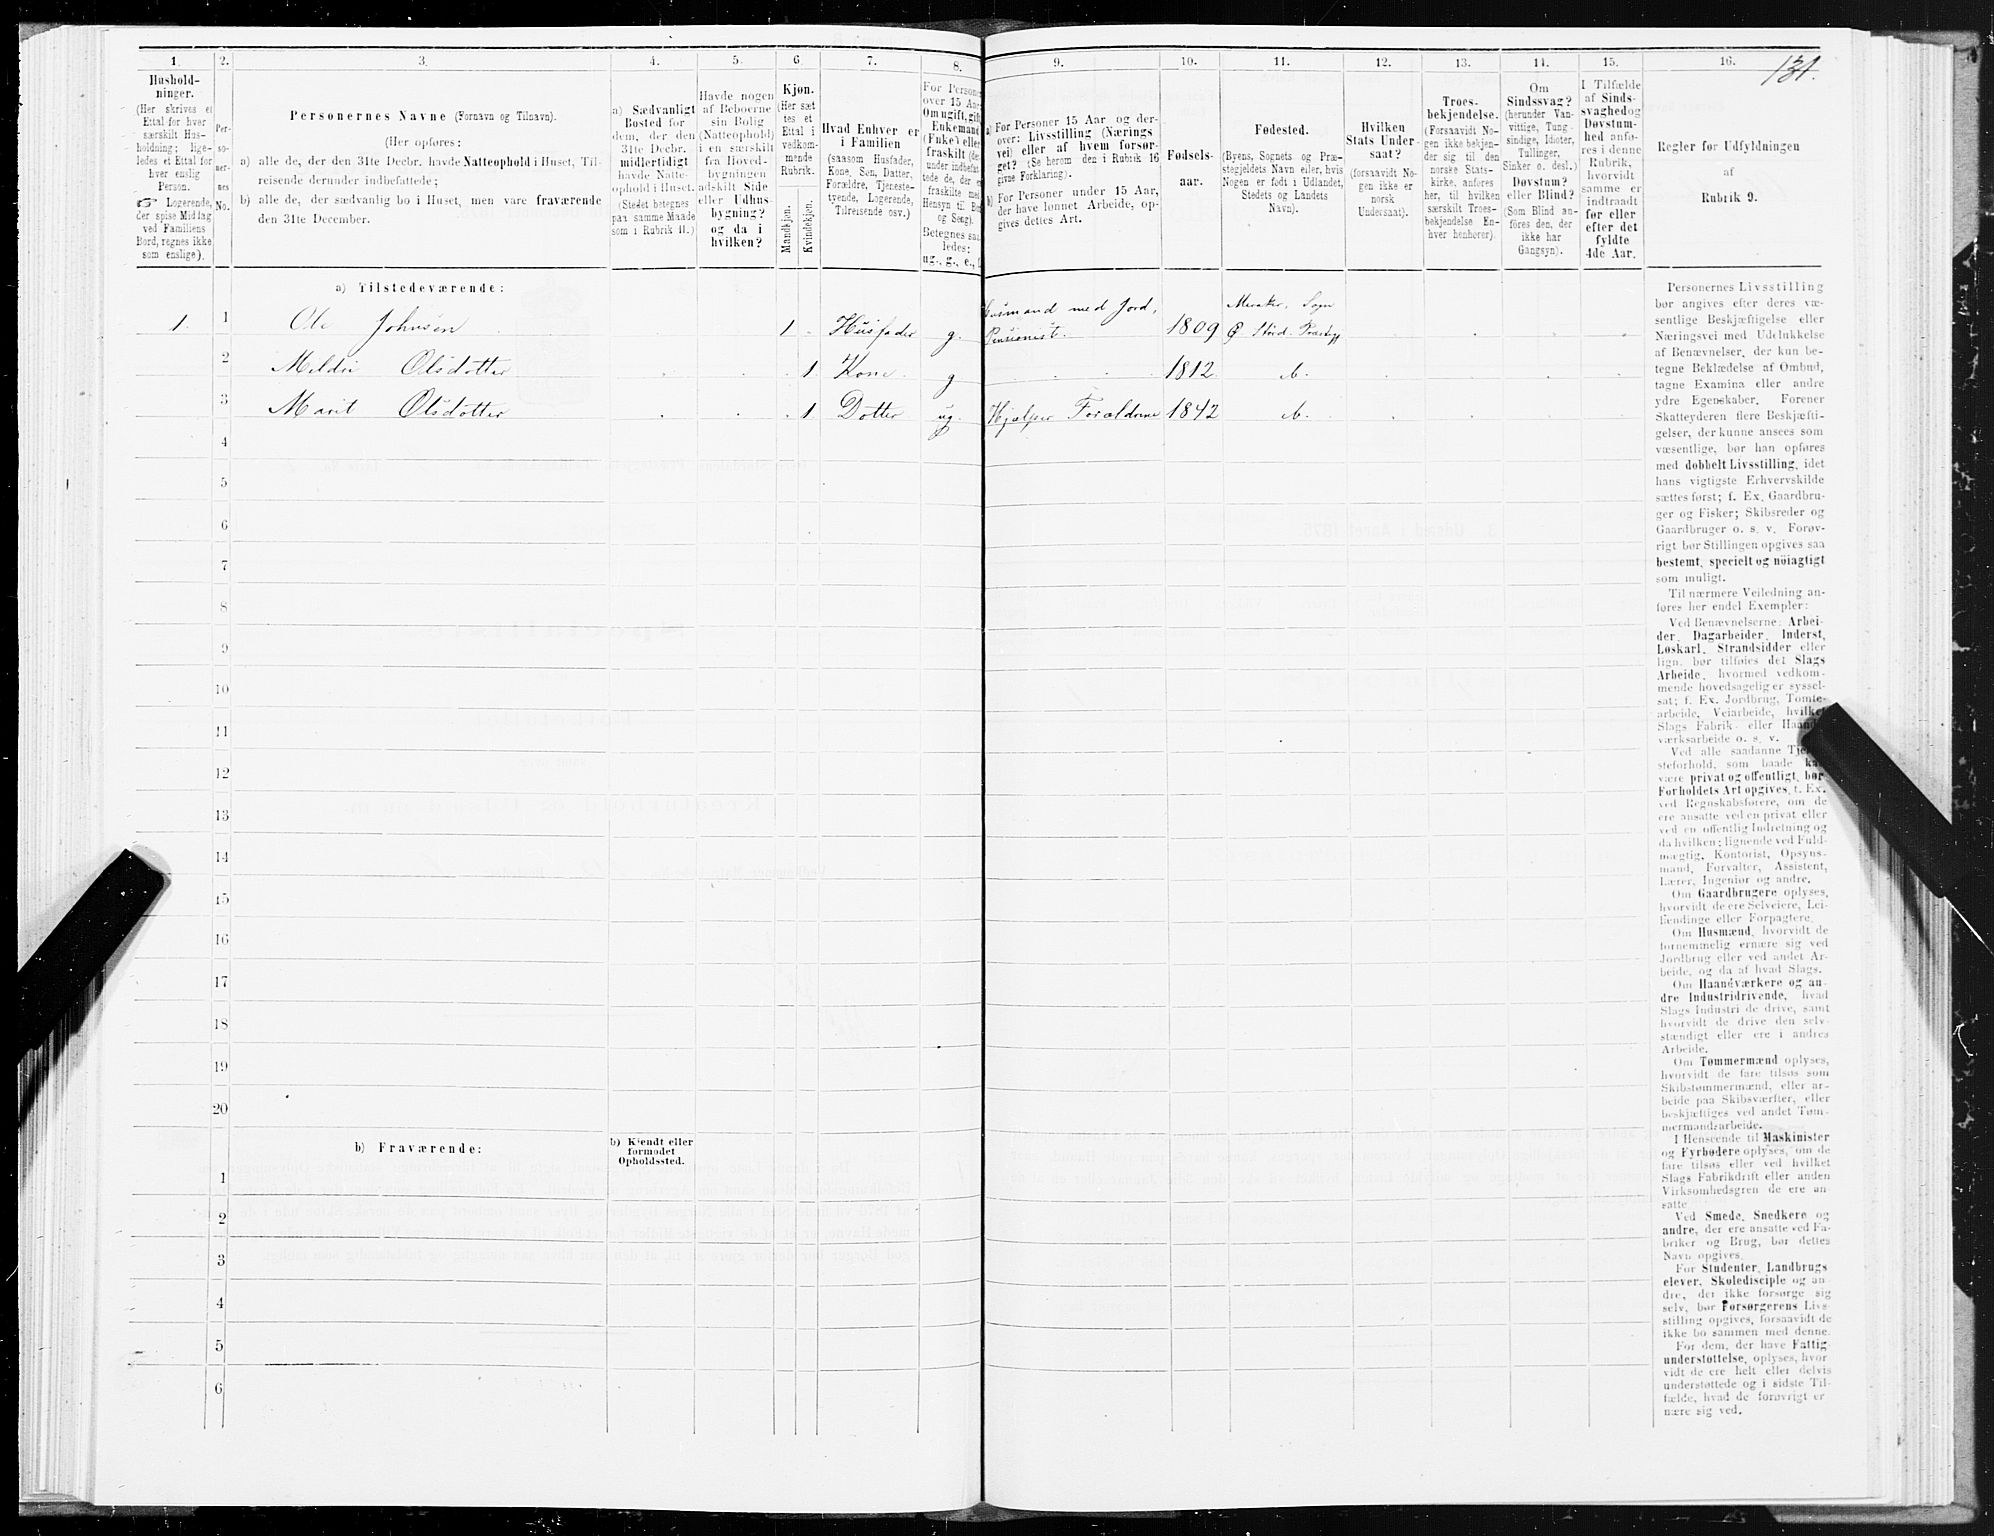 131.
1. 2. 3. 4. 5. 6. 7. 8. 9. 10. 11. 12. 13. 14. 15. 16.
Hushold-
ninger.
(Her skrives et
Ettal for hver
særskilt Hus-
holdning; lige-
ledes et Ettal for
hver enslig
Person.
☞ Logerende,
der spise Middag
ved Familiens
Bord, regnes ikke
som enslige).
Per-
so-
ner-
nes
No.
Personernes Navne (Fornavn og Tilnavn).
(Her opføres:
a) alle de, der den 31te Decbr. havde Natteophold i Huset, Til-
reisende derunder indbefattede;
b) alle de, der sædvanlig bo i Huset, men vare fraværende
den 31te December.
a) Sædvanligt
Bosted for
dem, der den
31te Decbr.
midlertidigt
havde Natte-
ophold i Huset.
(Stedet betegnes
paa samme Maade
som i Rubrik 11.)
Havde nogen
af Beboerne
sin Bolig
(Natteophold)
i en særskilt
fra Hoved-
bygningen
adskilt Side
eller Udhus-
bygning?
og da i
hvilken?
Kjøn.
(Her sæt
tes et
Ettal i
vedkom-
mende
Rubrik.
Mandkjøn.
Kvindekjøn.
Hvad Enhver er
i Familien
(saasom Husfader,
Kone, Søn, Datter,
Forældre, Tjeneste-
tyende, Logerende,
Tilreisende osv.)
For Persone
over 15 Aar
Om ugift, gift
Enkemand
(Enke) eller
fraskilt (der
under indbefat-
tede de, der er
fraskilte med
Hensyn til Bord
og Seng).
Betegnes saa
ledes:
ug., g., e., f.
a) For Personer 15 Aar og der-
over: Livsstilling (Nærings
vei) eller af hvem forsør-
get? (Se herom den i Rubrik 16
givne Forklaring).
b) For Personer under 15 Aar,
der have lønnet Arbeide, op-
gives dettes Art.
Fødsels-
aar.
Fødested.
(Byens, Sognets og Præ-
stegjeldets Navn eller, hvis
Nogen er født i Udlandet,
Stedets og Landets
Navn).
Hvilken
Stats Under-
saat?
(forsaavidt No-
gen ikke er
norsk
Undersaat).
Troes-
bekjendelse.
(Forsaavidt No-
gen ikke bekjen-
der sig til den
norske Stats-
kirke, anføres
her, til hvilken
særskilt Troes-
bekjendelse En-
hver henhører).
Om
Sindssvag?
(herunder Van-
vittige, Tung-
sindige, Idioter,
Tullinger,
Sinker o. desl.)
Døvstum?
eller Blind?
(Som Blind an-
føres den, der
ikke har
Gangsyn).
I Tilfælde
af Sinds-
svaghed og
Døvstum-
hed anfø-
res i denne
Rubrik,
hvorvidt
samme er
indtraadt
før eller
efter det
fyldte
4de Aar.
Regler for Udfyldningen
af
Rubrik 9.
a) Tilstedeværende:
1. 1 Ole Johnsen 1 Husfader g. Husmand med Jord, Pensionist. 1809 Meraker Sogn Ø Størd. Præstgj
2 Meldei Olsdotter 1 Kone g 1812 do.
3 Marit Olsdotter 1 Dotter ug. Hjælper Forældrene 1842 do.
4
5
6
7
8
9
10
11
12
13
14
15
16
17
18
19
20
b) Fraværende:
b) Kjendt eller
formodet
Opholdssted.
1
2
3
4
5
6
Personernes Livsstilling
bør angives efter deres væ-
sentlige Beskjæftigelse eller
Næringsvei med Udelukkelse
af Benævnelser, der kun be-
tegne Beklædelse af Ombud,
tagne Examina eller andre
ydre Egenskaber. Forener
Skatteyderen flere Beskjæfti-
gelser, der kunne ansees som
væsentlige, bør han opføres
med dobbelt Livsstilling, idet
hans vigtigste Erhvervskilde
sættes først; f. Ex. Gaardbru-
ger og Fisker; Skibsreder og
Gaardbruger o. s. v. Forøv-
rigt bør Stillingen opgives saa
bestemt, specielt og nöiagtigt
som muligt.
Til nærmere Veiledning an-
føres her endel Exempler:
Ved Benævnelserne: Arbei-
der, Dagarbeider, Inderst,
Løskarl, Strandsidder eller
lign. bør tilføies det Slags
Arbeide, hvormed vedkom-
mende hovedsagelig er syssel-
sat; f. Ex. Jordbrug, Tomte-
arbeide, Veiarbeide, hvilket
Slags Fabrik- eller Haand-
værksarbeide o. s. v.
Ved alle saadanne Tje
steforhold, som baade ka
være privat og offentligt, bør
Forholdets Art opgives, t. Ex.
ved Regnskabsførere, om de
ere ansatte ved en privat eller
ved en offentlig Indretning og
da hvilken; lignende ved Fuld-
mægtig, Kontorist, Opsyns-
mand, Forvalter, Assistent,
Lærer, Ingeniør og andre.
Om Gaardbrugere oplyses,
hvorvidt de ere Selveiere, Lei-
lændinge eller Forpagtere.
Om Husmænd, hvorvidt de
fornemmelig ernære sig ved
Jordbrug eller ved andet Ar-
beide, og da af hvad Slags.
Om Haandværkere og an-
dre Industridrivende, hvad
Slags Industri de drive, samt
hvorvidt de drive den selv-
stændigt eller ere i andres
Arbeide.
Om Tømmermænd oplyses,
hvorvidt de fare tilsøs som
Skibstømmermænd, eller ar-
beide paa Skibsværfter, eller
beskjæftiges ved andet Tøm-
mermandsarbeide.
I Henseende til Maskinister
og Fyrbødere oplyses, om de
fare tilsøs eller ved hvilket
Slags Fabrikdrift eller anden
Virksomhedsgren de ere an-
satte.
Ved Smede, Snedkere og
andre, der ere ansatte ved Fa-
briker og Brug, bør dettes
Navn opgives.
For Studenter, Landbrugs
elever, Skoledisciple og an-
dre, der ikke forsørge sig
selv, bør Forsørgerens Livs-
stilling opgives, forsaavidt de
ikke bo sammen med denne.
For dem, der have Fattig-
understøttelse, oplyses, hvor
vidt de ere helt eller delvis
understøttede og i sidste Til-
fælde, hvad de forøvrigt er
nære sig ved.